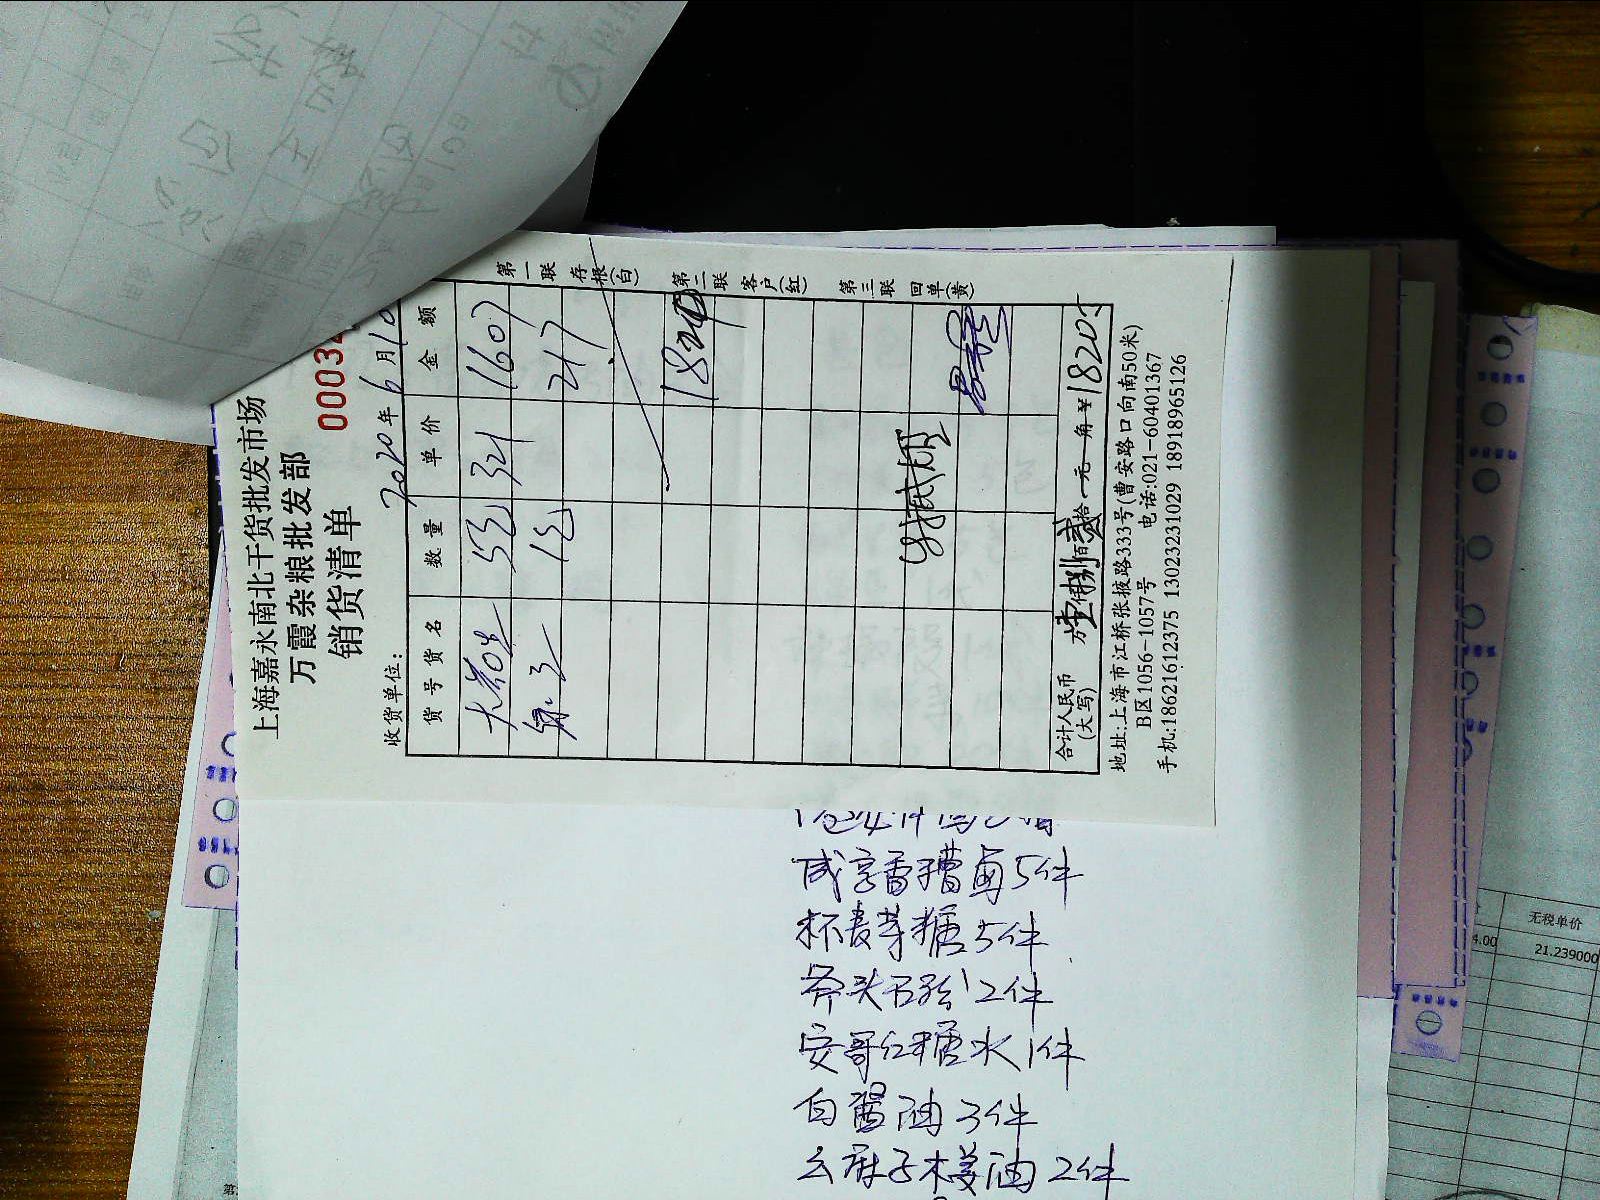 上海嘉永南北干货批发市场
万霞杂粮批发部
销货清单
0003
收货单位:
2020年6月10
货号货名 数量 单价 金额
5包 321 1607
绿豆 1包 217
1824
合计人民币(大写) 万壹仟捌佰贰拾 元 角 ¥1820
地址:上海市江桥张掖路333号(曹安路口向南50米)
B区1056-1057号 电话:021-60401367
手机:18621612375 13023231029 18918965126
第一联 存根(白)
第二联 客户(红)
第三联 回单(黄)
咸亨香糟卤5件
杯麦芽糖5件
斧头 2件
安哥红糖水1件
白酱油3件
么麻子木姜油2件
无税单价
4.00 21.239000